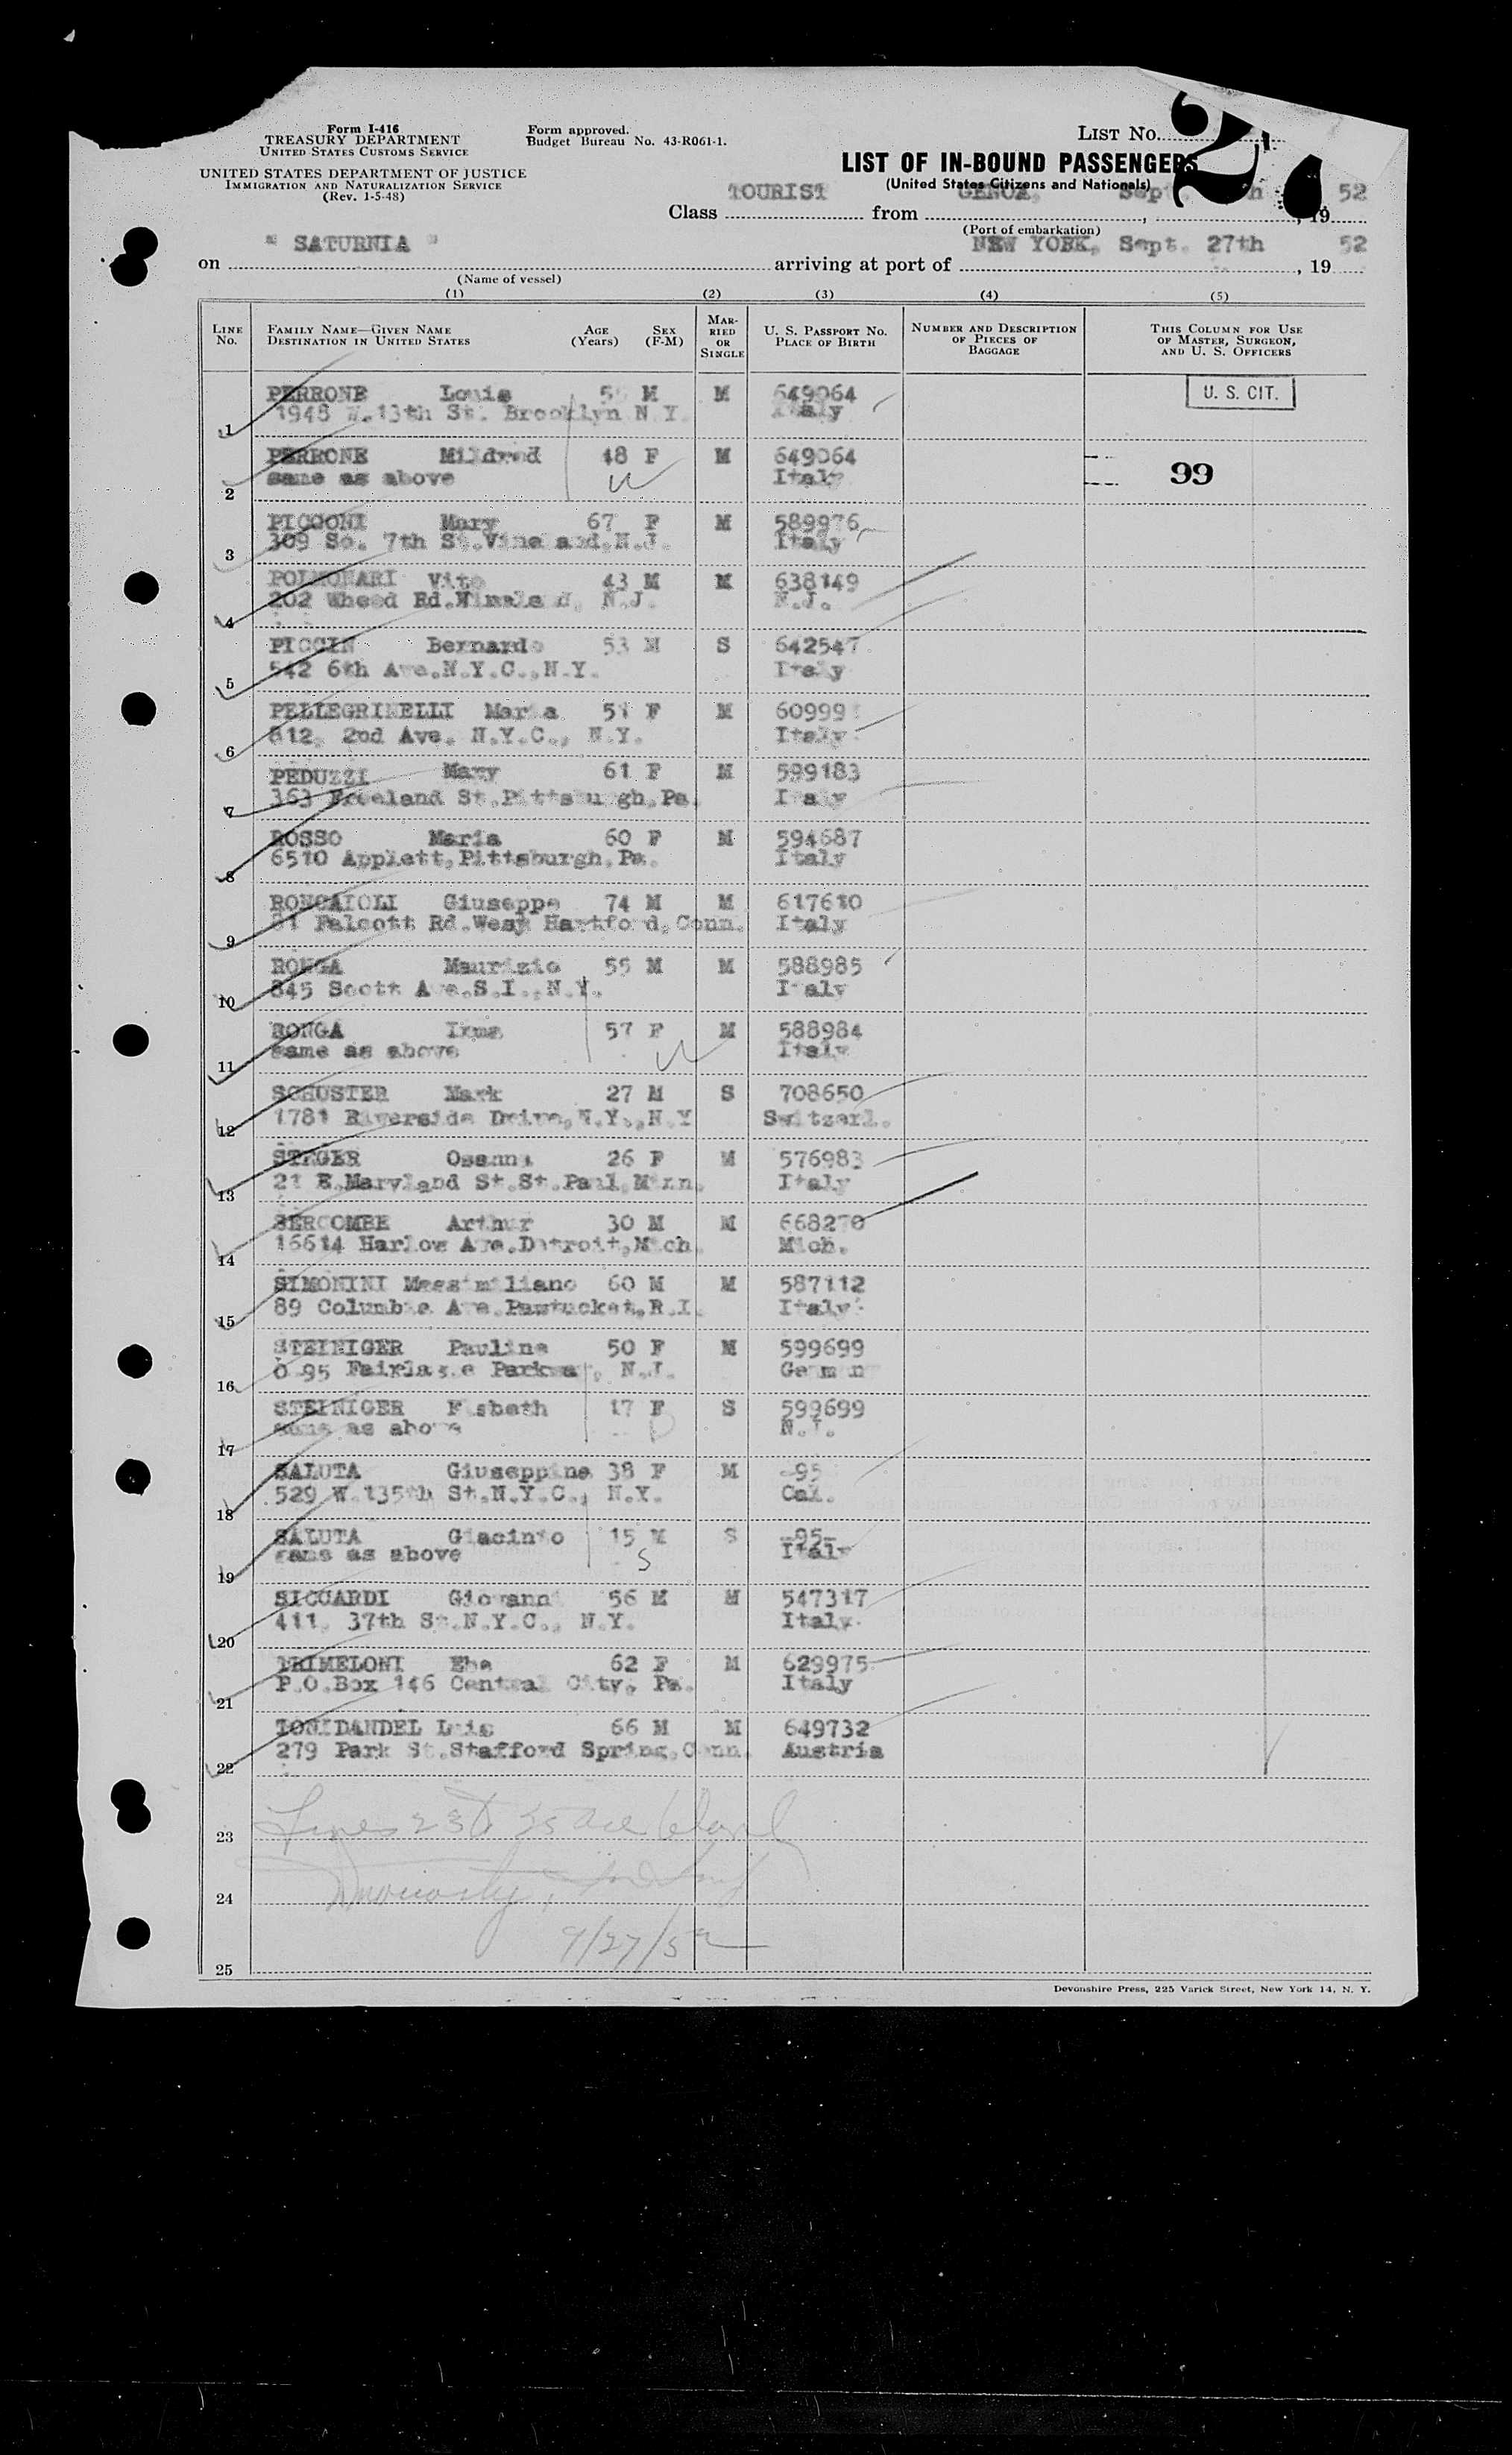 Form I-416
TREASURY DEPARTMENT
UNITED STATES CUSTOMS SERVICE
UNITED STATES DEPARTMENT OF JUSTICE
IMMIGRATION AND NATURALIZATION SERVICE
(Rev. 1-5-48)
Form approved.
Budget Bureau No. 43-R061-1.
LIST NO.
2
LIST OF IN-BOUND PASSENGERS
(United States Citizens and Nationals)
Class TOURIST from GENOA, Sept. , 19 52
(Port of embarkation)
on " SATURNIA " arriving at port of NEW YORK, Sept. 27th , 19 52
(Name of vessel)
(1) (2) (3) (4) (5)
LINE NO. FAMILY NAME—GIVEN NAME DESTINATION IN UNITED STATES AGE (Years) SEX (F-M) MARRIED OR SINGLE U. S. PASSPORT NO. PLACE OF BIRTH NUMBER AND DESCRIPTION OF PIECES OF BAGGAGE THIS COLUMN FOR USE OF MASTER, SURGEON, AND U. S. OFFICERS
PERRONE Louis M M 649064 U. S. CIT.
1 1948 W.13th St. Brooklyn N.Y. Italy
PERRONE Mildred 48 F M 649064 99
2 same as above Italy
PICCONI Mary 67 F M 589976
3 309 So. 7th St.Vineland,N.J. Italy
POLMONARI Vito 43 M M 638149
4 202 Wheed Rd. N.J. N.J.
PICCIN Bernardo 53 M S 642547
5 542 6th Ave.N.Y.C.,N.Y. Italy
PELLEGRINELLI Maria 51 F M 60999
6 812, 2nd Ave. N.Y.C., N.Y. Italy
PEDUZZI Mary 61 F M 599183
7 363 Freeland St.Pittsburgh,Pa. Italy
ROSSO Maria 60 F M 594687
8 6510 Applett,Pittsburgh,Pa. Italy
RONCAIOLI Giuseppe 74 M M 617610
9 Falcott Rd.West Hartford,Conn. Italy
RONGA Maurizio 55 M M 588985
10 845 Scott Ave.S.I.,N.Y. Italy
RONGA Irma 57 F M 588984
11 same as above Italy
SCHUSTER Mark 27 M S 708650
12 1781 Riverside Drive,N.Y.,N.Y Switzerl.
STEGER Osanna 26 F M 576983
13 21 E.Maryland St.St.Paul,Minn. Italy
SERCOMBE Arthur 30 M M 668270
14 16614 Harlow Ave.Detroit,Mich. Mich.
SIMONINI Massimiliano 60 M M 587112
15 89 Columbia Ave.Pawtucket,R.I. Italy
STEINIGER Pauline 50 F M 599699
16 N.J.
STEINIGER 17 F S 599699
17 same as above N.J.
SALUTA Giuseppina 38 F M -95
18 529 W.135th St.N.Y.C., N.Y. Cal.
SALUTA Giacinto 15 M S -95-
19 same as above Italy
SICCARDI Giovanni 56 M M 547317
20 411, 37th St.N.Y.C., N.Y. Italy
TRIMELONI Ebe 62 F M 629975
21 P.O.Box 146 Central City, Pa. Italy
TONIDANDEL Luis 66 M M 649732
22 279 Park St.Stafford Spring,Conn. Austria
23 Lines 23 to 25 are blank
24
9/27/52
25
Devonshire Press, 225 Varick Street, New York 14, N. Y.